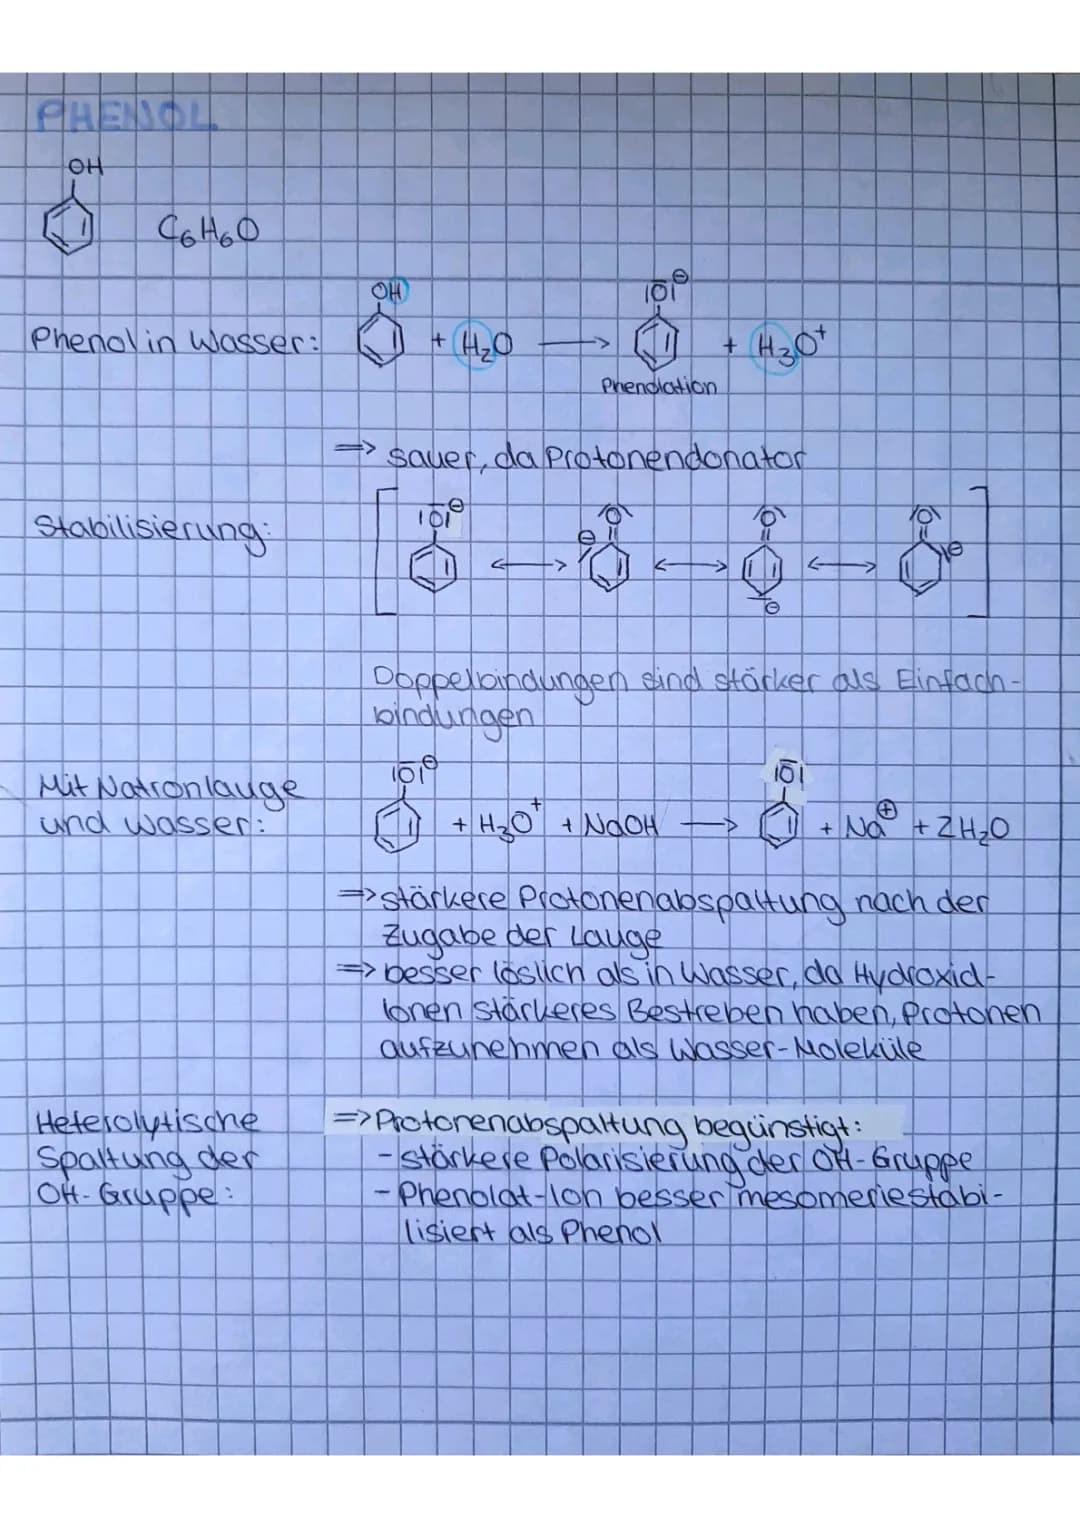 PHENOL
OH
C₆H₆O
OH
|O̅|⊖
Phenol in Wasser: + H₂O → + H₃O⁺
Phenolation
=> sauer, da Protonendonator
Stabilisierung: [ |O̅|⊖ ↔ ⊖ O ↔ O ⊖ ↔ O ⊖ ]
Doppelbindungen sind stärker als Einfach-
bindungen
|O̅|⊖ |O̅|
Mit Natronlauge
und Wasser: + H₃O⁺ + NaOH → + Na⊕ + 2H₂O
=> stärkere Protonenabspaltung nach der
Zugabe der Lauge
=> besser löslich als in Wasser, da Hydroxid-
Ionen stärkeres Bestreben haben, Protonen
aufzunehmen als Wasser-Moleküle
Heterolytische => Protonenabspaltung begünstigt:
Spaltung der - stärkere Polarisierung der OH-Gruppe
OH-Gruppe: - Phenolat-Ion besser mesomeriestabi-
lisiert als Phenol